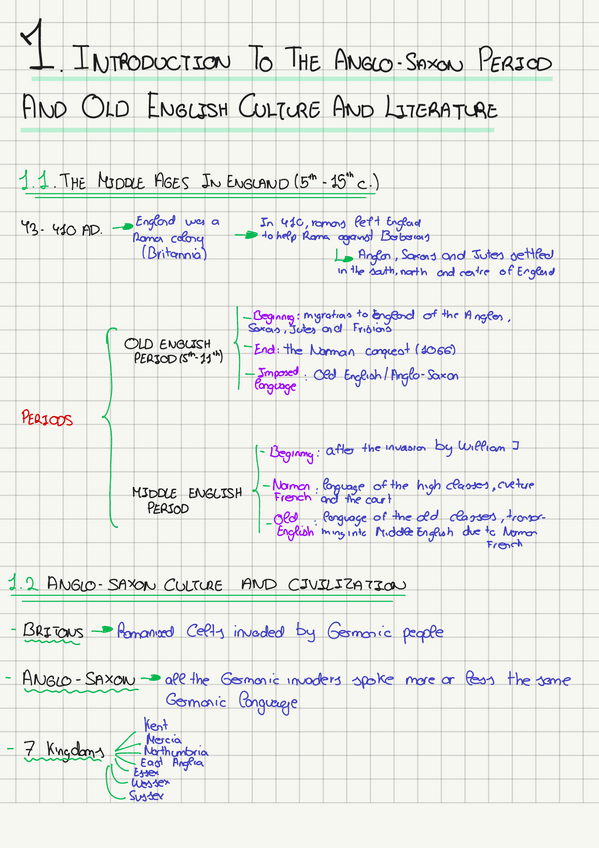 1. INTRODUCTION TO THE ANGLO-SAXON PERIOD
AND OLD ENGLISH CULTURE AND LITERATURE
1.1. THE MIDDLE AGES IN ENGLAND (5th - 15th c.)
43 - 410 AD.
England was a
Roma colony
(Britannia)
In 410, romans left Englad
to help Roma against Barbarians
Anglon, Saxons and Jutes settled
in the south, north and centre of England
PERIODS
OLD ENGLISH
PERIOD (5th-11th)
- Beginning: migrations to England of the Angles,
Saxons, Jutes and Frisians
- End: the Norman conquest (1066)
- Imposed language: Old English/Anglo-Saxon
MIDDLE ENGLISH
PERIOD
- Beginning: after the invasion by William I
- Norman French: language of the high classes, culture
and the court
- Old English: language of the old classes, transfor-
ming into Middle English due to Norman
French
1.2 ANGLO-SAXON CULTURE AND CIVILIZATION
- BRITONS → Romanised Celts invaded by Germanic people
- ANGLO-SAXON → all the Germanic invaders spoke more or less the same
Germanic language
- 7 Kingdoms
Kent
Mercia
Northumbria
East Anglia
Essex
Wessex
Sussex